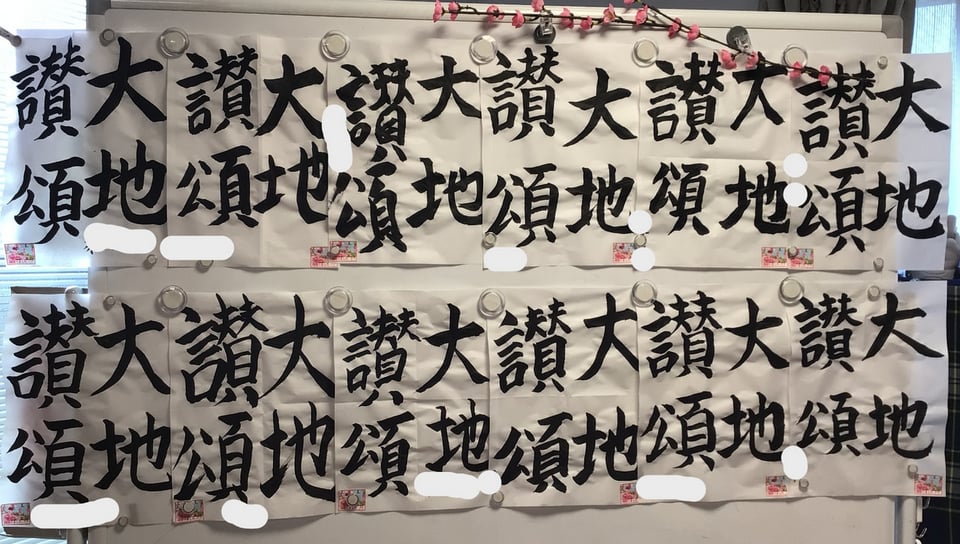 大地
讃頌
大地
讃頌
大地
讃頌
大地
讃頌
大地
讃頌
大地
讃頌
大地
讃頌
大地
讃頌
大地
讃頌
大地
讃頌
大地
讃頌
大地
讃頌